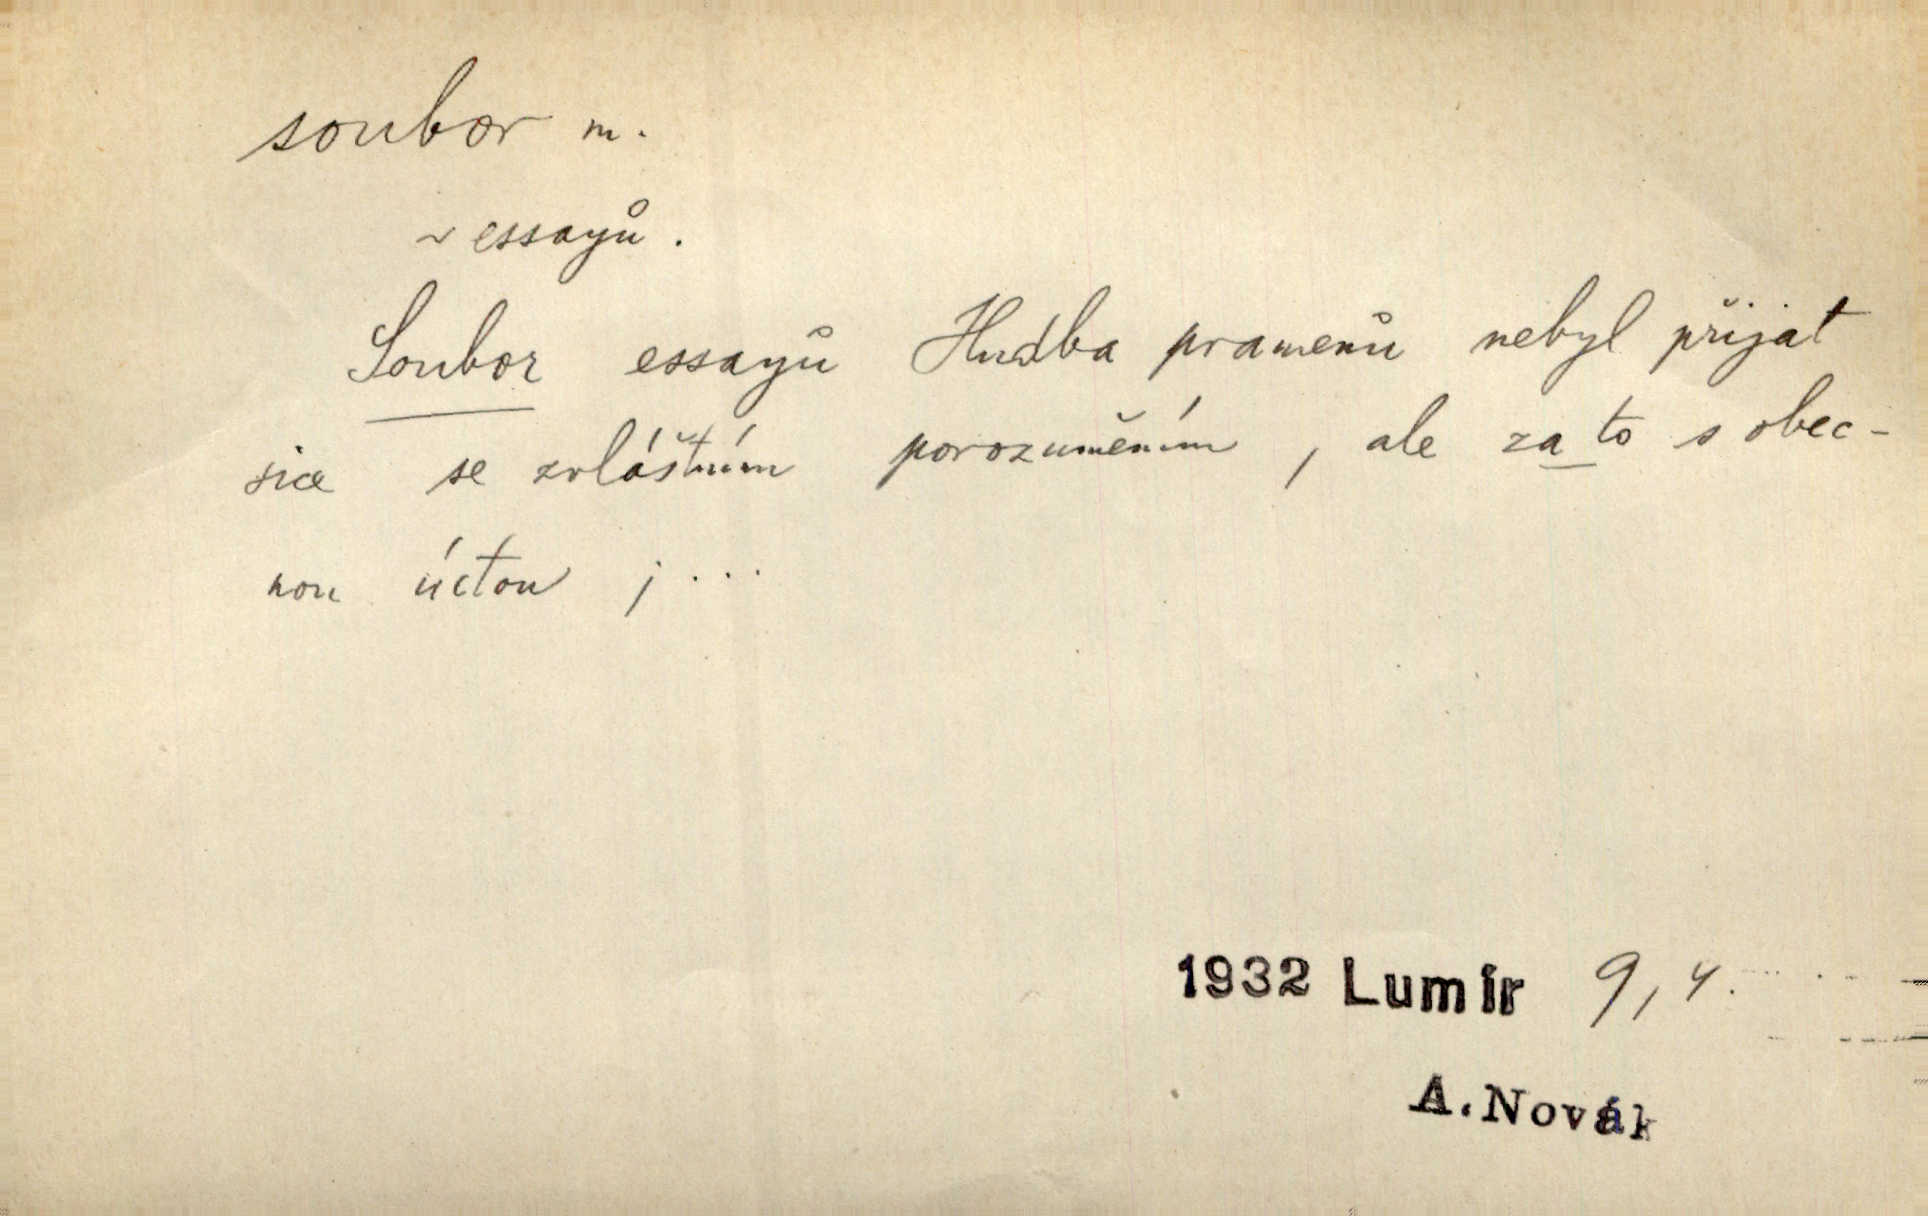 soubor m.
~ essayů.
Soubor essayů Hudba pramenů nebyl přijat
sice se zvláštním porozuměním, ale za to s obec-
nou úctou ; ...
1932 Lumír 9, 4.
A. Novák